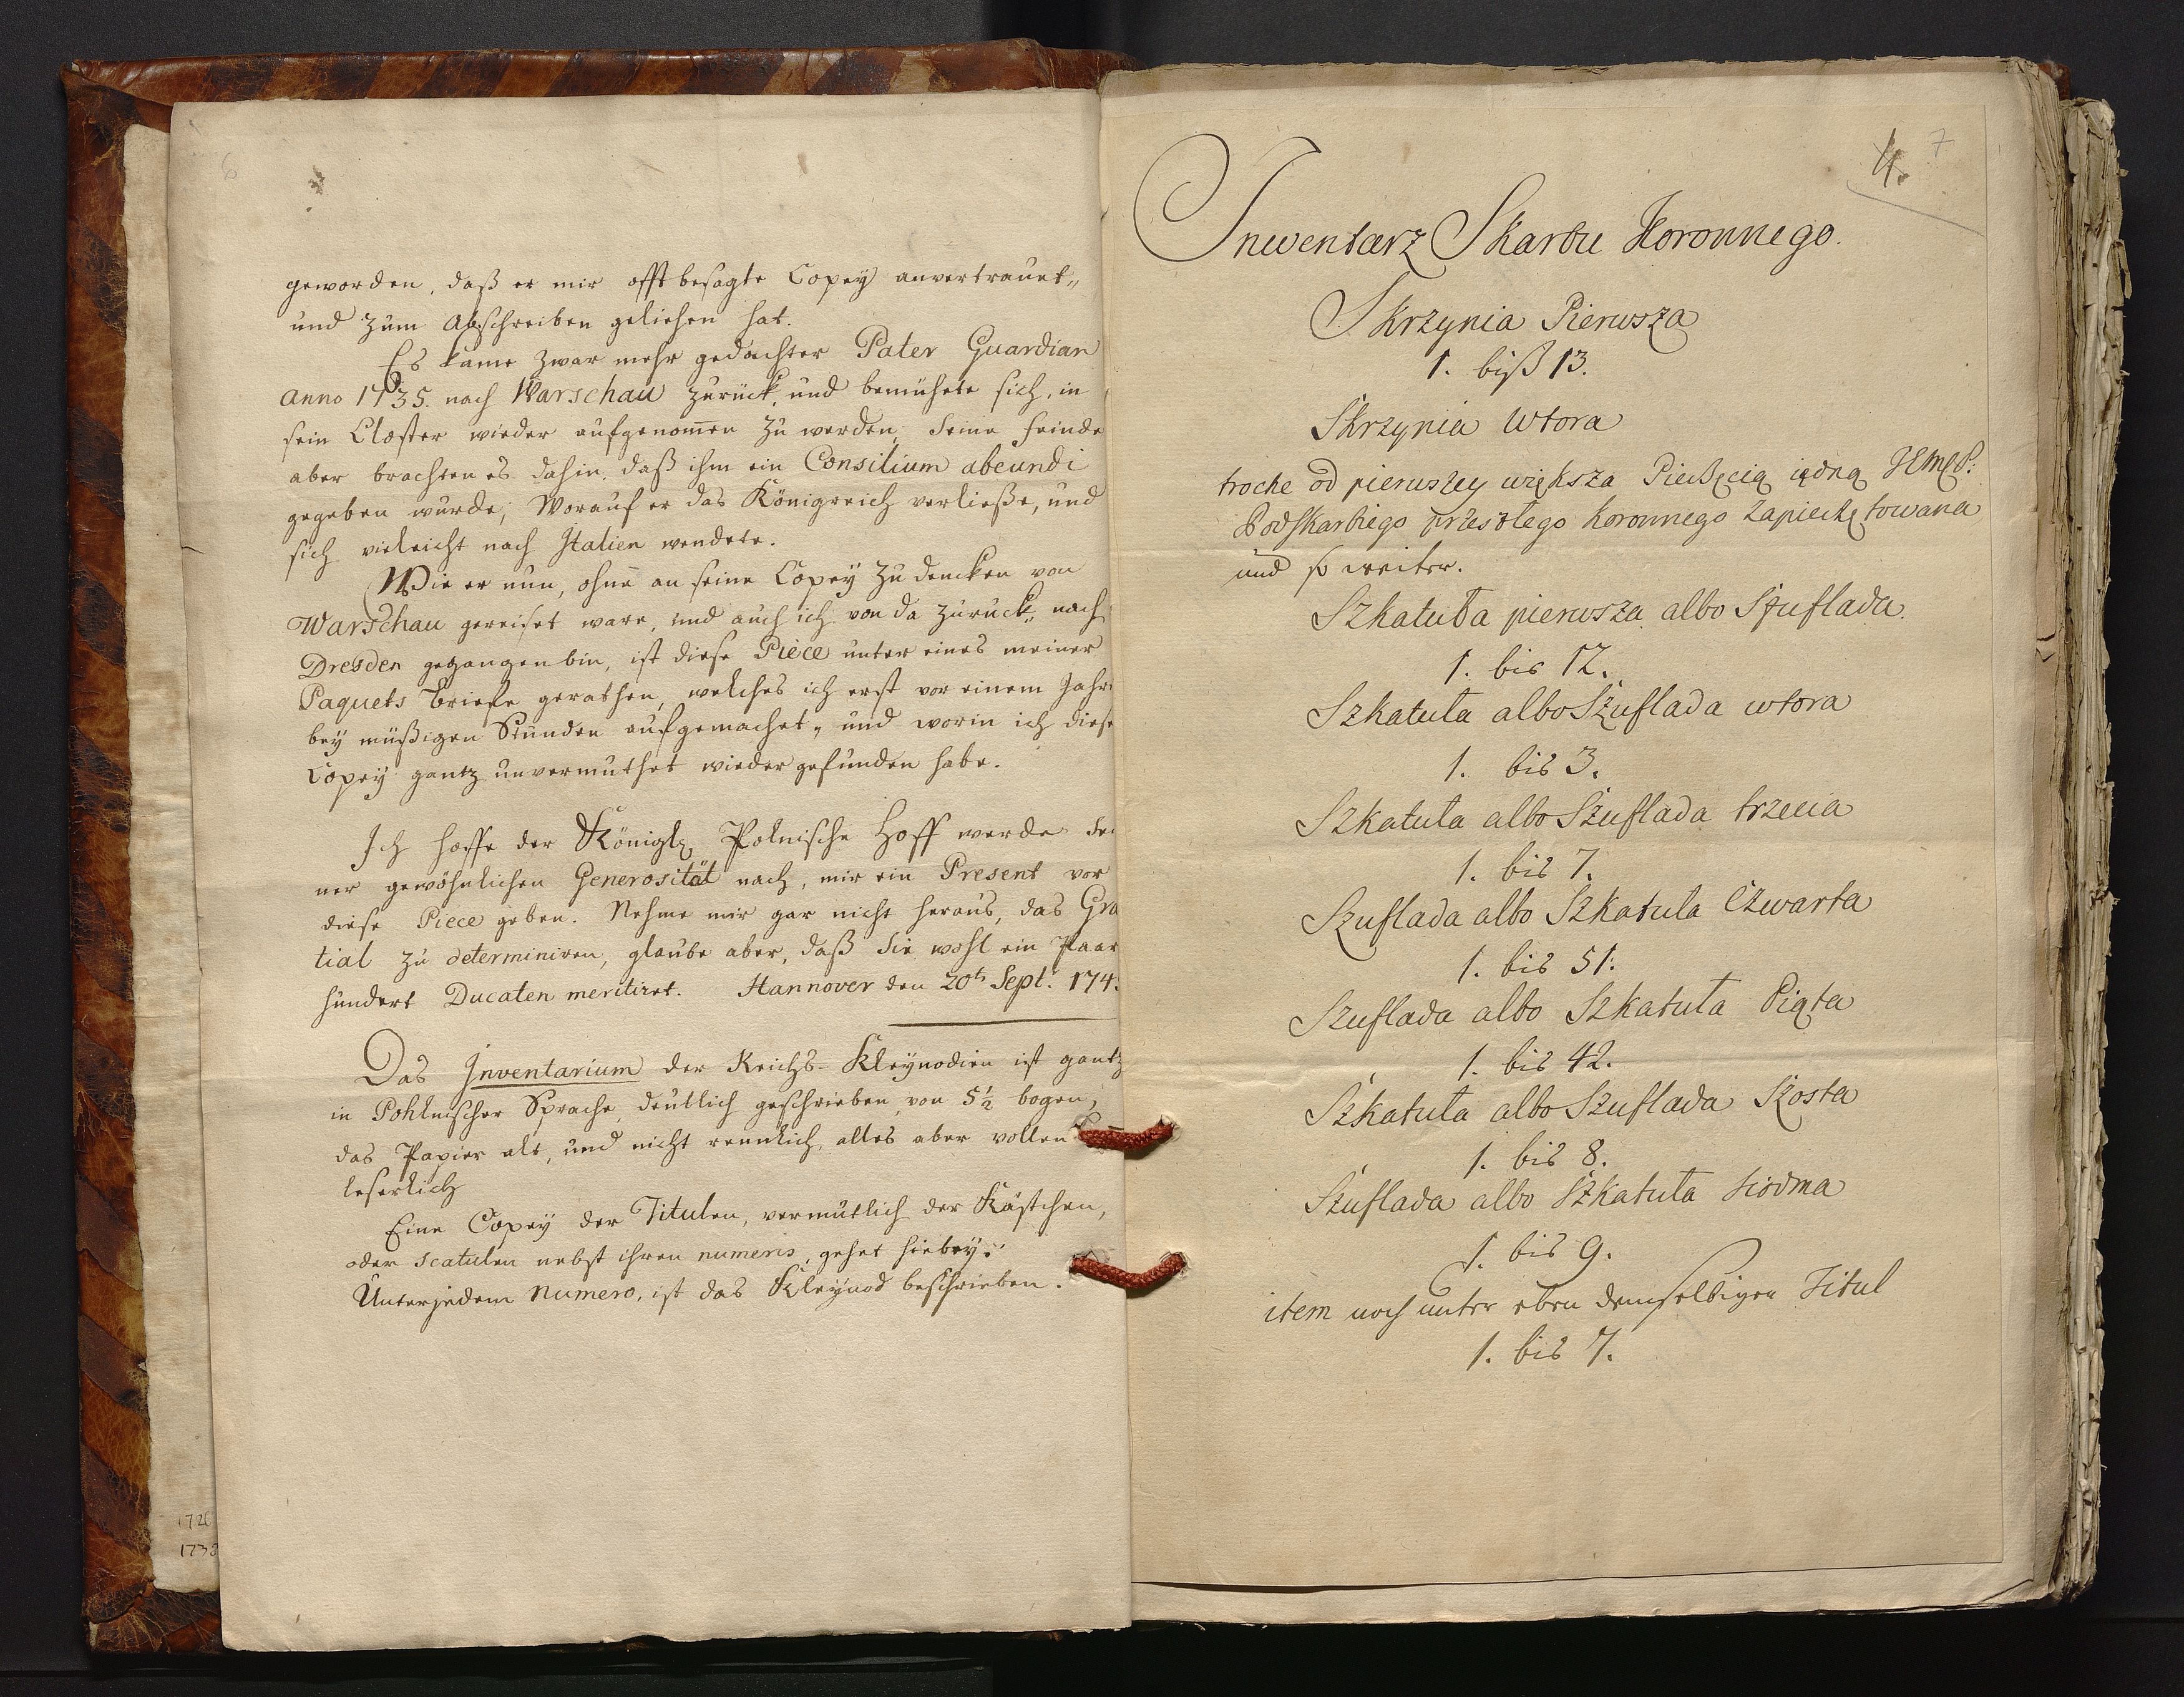 6
geworden, daß er mir offt besagte Copey anvertrauet„
und zum Abschreiben geliehen hat.
Es kame zwar mehr gedachter Pater Guardian
Anno 1735. nach Warschau zurück, und bemühete sich, in
sein Closter wieder aufgenom̄en zu werden, Seine Feinde
aber brachten es dahin, daß ihm ein Consilium abeundi
gegeben wurde; Worauf er das Königreich verließe, und
sich vieleicht nach Italien wendete.
Wie er nun, ohne an seine Copey zu dencken von
Warschau gereiset ware, und auch ich von da zurück„ nach
Dresden gegangen bin, ist diese Piece unter eines meiner
Paquets Briefe gerathen, welches ich erst vor einem Jahr
bey müßigen Stunden aufgemachet„ und worin ich diese
Copey gantz unvermuthet wieder gefunden habe.
Ich hoffe der Königl. Polnische Hoff werde Sei
ner gewöhnlichen Generosität nach, mir ein Present vor
diese Piece geben. Nehme mir gar nicht heraus, das Gra
tial zu determiniren, glaube aber, daß Sie wohl ein Paar
hundert Ducaten meritiret. Hannover den 20t Sept: 174.
Das Inventarium der Reichs-Kleynodien ist gantz
in Pohlnischer Sprache, deutlich geschrieben, von 5½ bogen,
das Papier alt, und nicht rennlich, alles aber vollen
leserlich
Eine Copey der Titulen, vermutlich der Kästchen,
oder scatulen nebst ihren numeris, gehet hiebey.
Unter jedem Numero, ist das Kleynod beschrieben.
1726
1738
4. 7
Inwentarz Skarbu Koronnego.
Skrzynia Pierwsza
1. biß 13.
Skrzynia Wtora
troche od pierwszey większa Pieczęcią iedną
Podskarbiego przeszłego koronnego zapieczętowana
und so weiter.
Szkatuła pierwsza albo Szuflada.
1. bis 12.
Szkatuła albo Szuflada wtora
1. bis 3.
Szkatuła albo Szuflada trzecia
1. bis 7.
Szuflada albo Szkatuła Czwarta
1. bis 51.
Szuflada albo Szkatuła Piąta
1. bis 42.
Szkatuła albo Szuflada Szosta
1. bis 8.
Szuflada albo Szkatuła siodma
1. bis 9.
item noch unter eben demselbigen Titul
1. bis 7.